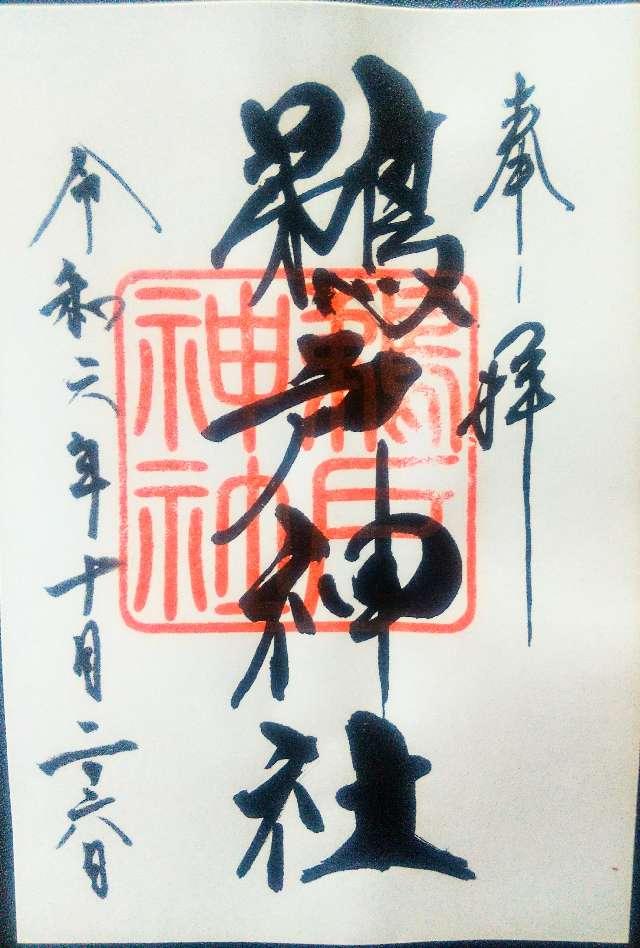 奉拝
鵜戸神社
鵜戸神社
令和六年十月二六日